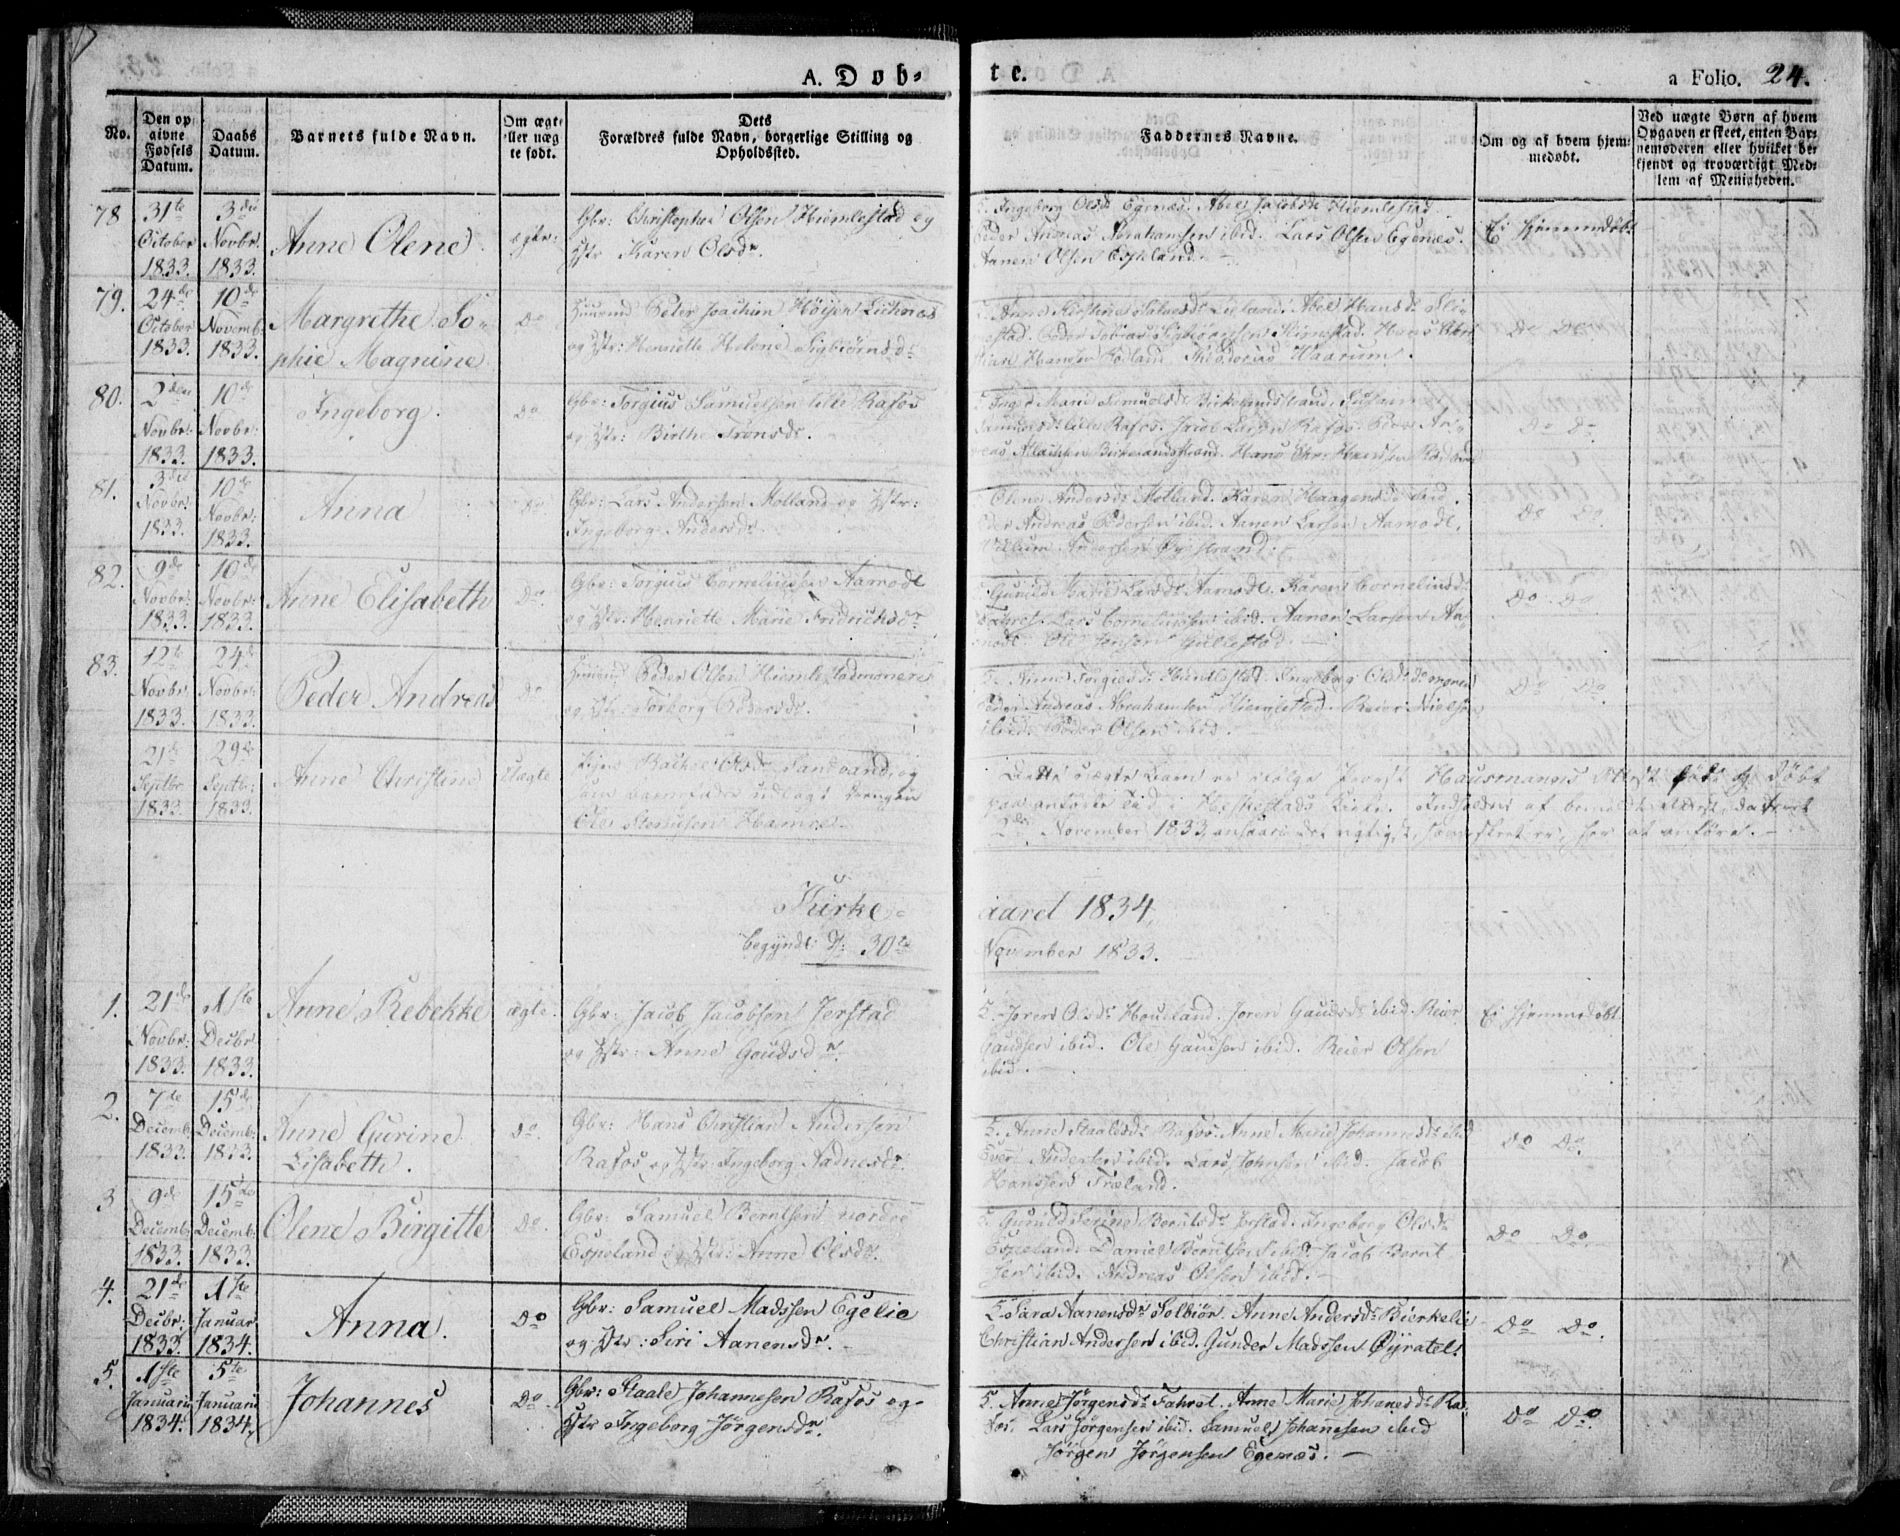 A. Døb-
te.
a Folio. 24.
No.
Den op
givne
Fødsels
Datum.
Daabs
Datum.
Barnets fulde Navn.
Om ægte
eller uæg
te født.
Dets
Forældres fulde Navn, borgerlige Stilling og
Opholdssted.
Faddernes Navne.
Om og af hvem hjem-
medøbt.
Ved uægte Børn af hvem
Opgaven er skeet, enten Bar-
nemoderen eller hvilket be-
kjendt og troværdigt Med-
lem af Menigheden.
78
31te
October
1833.
3die
Novbr.
1833.
Anne Olene
ægte:
Gbr: Christopher Olsen Hiemlestad og
Hstr Karen Olsdr.
Ingeborg Olsdr Egenæs. Abel Jacobsdr Hiemlestad
Peder Andreas Abrahamsen ibid. Lars Olsen Egenæs.
Aanen Olsen Espeland.
Ei Hjemmedøbt
79.
24de
October
1833.
10de
Novemb
1833.
Margrethe So-
phie Magnine
Do
Huusmd Peder Joachim
og Hstr: Henriette Helene Sigbiørnsdr
Do Do
80.
2den
Novbr:
1833.
10de
Novbr:
1833.
Ingeborg.
Do
Gbr: Torgius Samuelsen lille Rafos
og Hstr: Birthe Tronsdr.
Do Do
81.
3die
Novbr:
1833.
10de
Novbr:
1833.
Anna
Do
Gbr: Lars Andersen Molland og Hstr:
Ingeborg Andersdr
Olene Andersdr Molland. Karen Haagensdr ibid.
Peder Andreas Pedersen ibid. Aanen Larsen Aamodt.
Villum Andersen Øistrand.
Do Do
82.
9de
Novbr:
1833.
10de
Novbr:
1833.
Anne Elisabeth
Do
Gbr: Torgius Corneliussen Aamodt
og Hstr: Henriette Marie Fredrichsdr
Gunild Marie Larsdr Aamodt. Karen Corneliusdr
Lars Corneliussen ibid. Aanen Larsen Aa-
modt. Ole Jensen Gullestad.
Do Do
83.
12te
Novbr:
1833.
24de
Novbr:
1833.
Peder Andreas
Do
Huusmd Peder Olsen Hiemlestadmonere
og Hstr: Torborg Pedersdr.
Anne Torgiesdr Hiemlestad. Ingeborg Olsdr
Peder Andreas Abrahamsen Hiemlestad. Reier Nielsen
ibid. Peder Olsen ibid.
Do Do
21de
Septbr
1833.
29de
Septbr:
1833.
Anne Christine
Uægte
Pige Rachel Olsdr Sandvand, og
som barnefader udlagt
Ole Hamre
Dette uægte Barn er ifølge Provst Hausmanns Attest født og døbt
paa anførte Tid i Heskestads Kirke. Indholdet af bemeldte Attest, dateret
November 1833, ansaaes det rigtigst, som skeet er, her at anføre.
Kirke-
aaret 1834,
begyndt d: 30te
November 1833.
1.
21de
Novbr:
1833.
1ste
Decbr
1833.
Anne Rebekke
ægte.
Gbr: Jacob Jacobsen Jerstad
og Hstr: Anne Gaudsdr.
Joren Olsdr Houeland. Joren Gaudsdr ibid. Reier
Gaudsen ibid. Ole Gaudsen ibid. Reier Olsen
ibid.
Ei Hjemmedøbt
2.
7de
Decemb:
1833.
15de
Decemb:
1833.
Anne Gurine
Lisabeth.
Do.
Gbr: Hans Christian Andersen
Rafos og Hstr: Ingeborg Aadnesdr.
Anne Staalesdr Rafos. Anne Marie Johannesdr ibid
Even Andersen ibid. Lars Johnsen ibid. Jacob
Hanssen Træland.
Do Do.
3
9de
Decemb:
1833.
15de
Decemb:
1833.
Olene Birgitte
Do.
Gbr: Samuel Berntsen nordre
Espeland og Hstr: Anne Olsdr.
Gunild Serine Berntsdr Jerstad. Ingeborg Olsdr
Espeland. Daniel Berntsen ibid. Jacob Bernt
sen ibid. Andreas Olsen ibid.
Do Do.
4.
21de
Decbr:
1833.
1ste
Januar
1834.
Anna.
Do
Gbr: Samuel Madssen Egelie
og Hstr: Siri Aanensdr.
F. Sara Aanensdr Solbiør. Anne Andersdr Bierkelie
Christian Andersen ibid. Gunder Madssen Øyratel.
Do Do.
5.
1ste
Januarii
1834.
5te
Januarii
1834.
Johannes
Do
Gbr: Staale Johannesen Rafos og
Hstr Ingeborg Jørgensdr.
F. Anne Jørgensdr Fahret. Anne Marie Johanesdr Ra-
fos. Lars Jørgensen ibid. Samuel Johannesen ibid
Jørgen Jørgensen Egenæs.
Do Do.